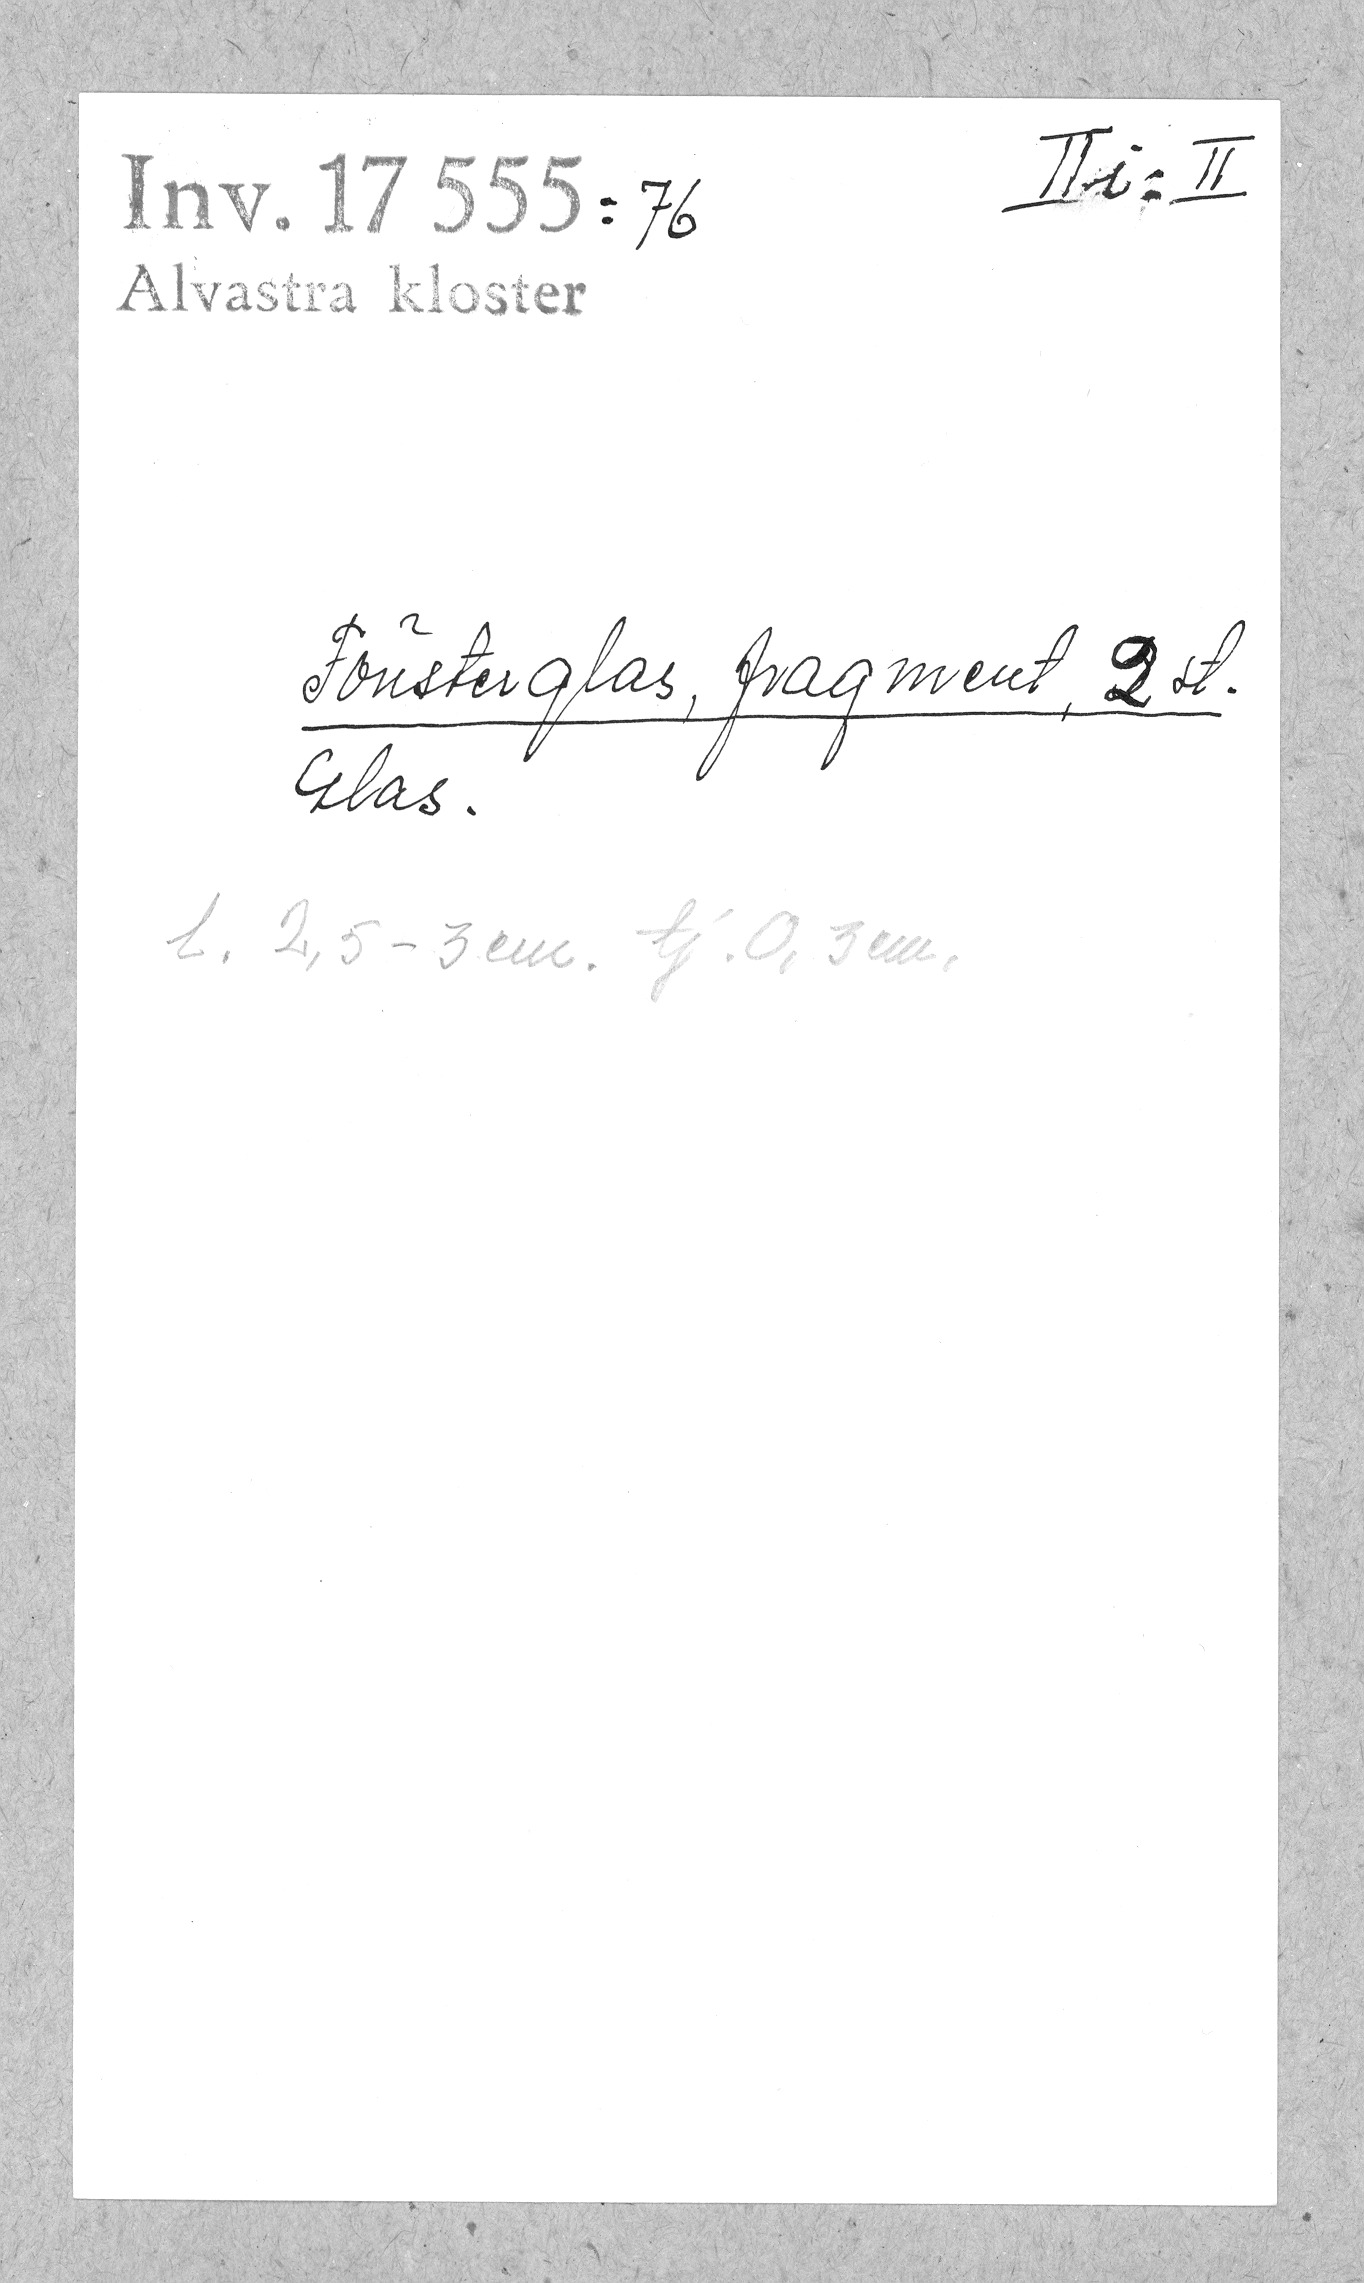 Inv. 17 555:76
IIi:II
Alvastra kloster
Fönsterglas, fragment, 2 st.
Glas.
L. 2,5-3 cm. tj. 0,3 cm.